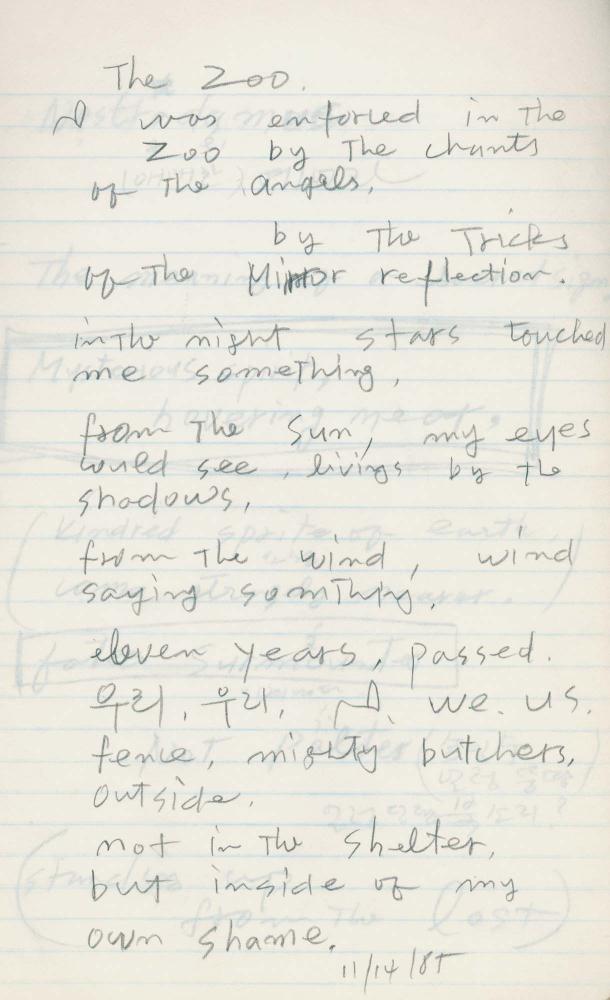 The Zoo.
was enforced in the
Zoo by The chants
of The angels,
by The Tricks
of The Mirror reflection.
in The night stars touched
me something,
from The Sun, my eyes
would see, livings by the
shadows,
from The wind, wind
saying somThing,
eleven years, passed.
우리, 우리, we. us.
fence, mighty butchers,
outside.
not in The shelter,
but inside of my
own shame.
11/14/85